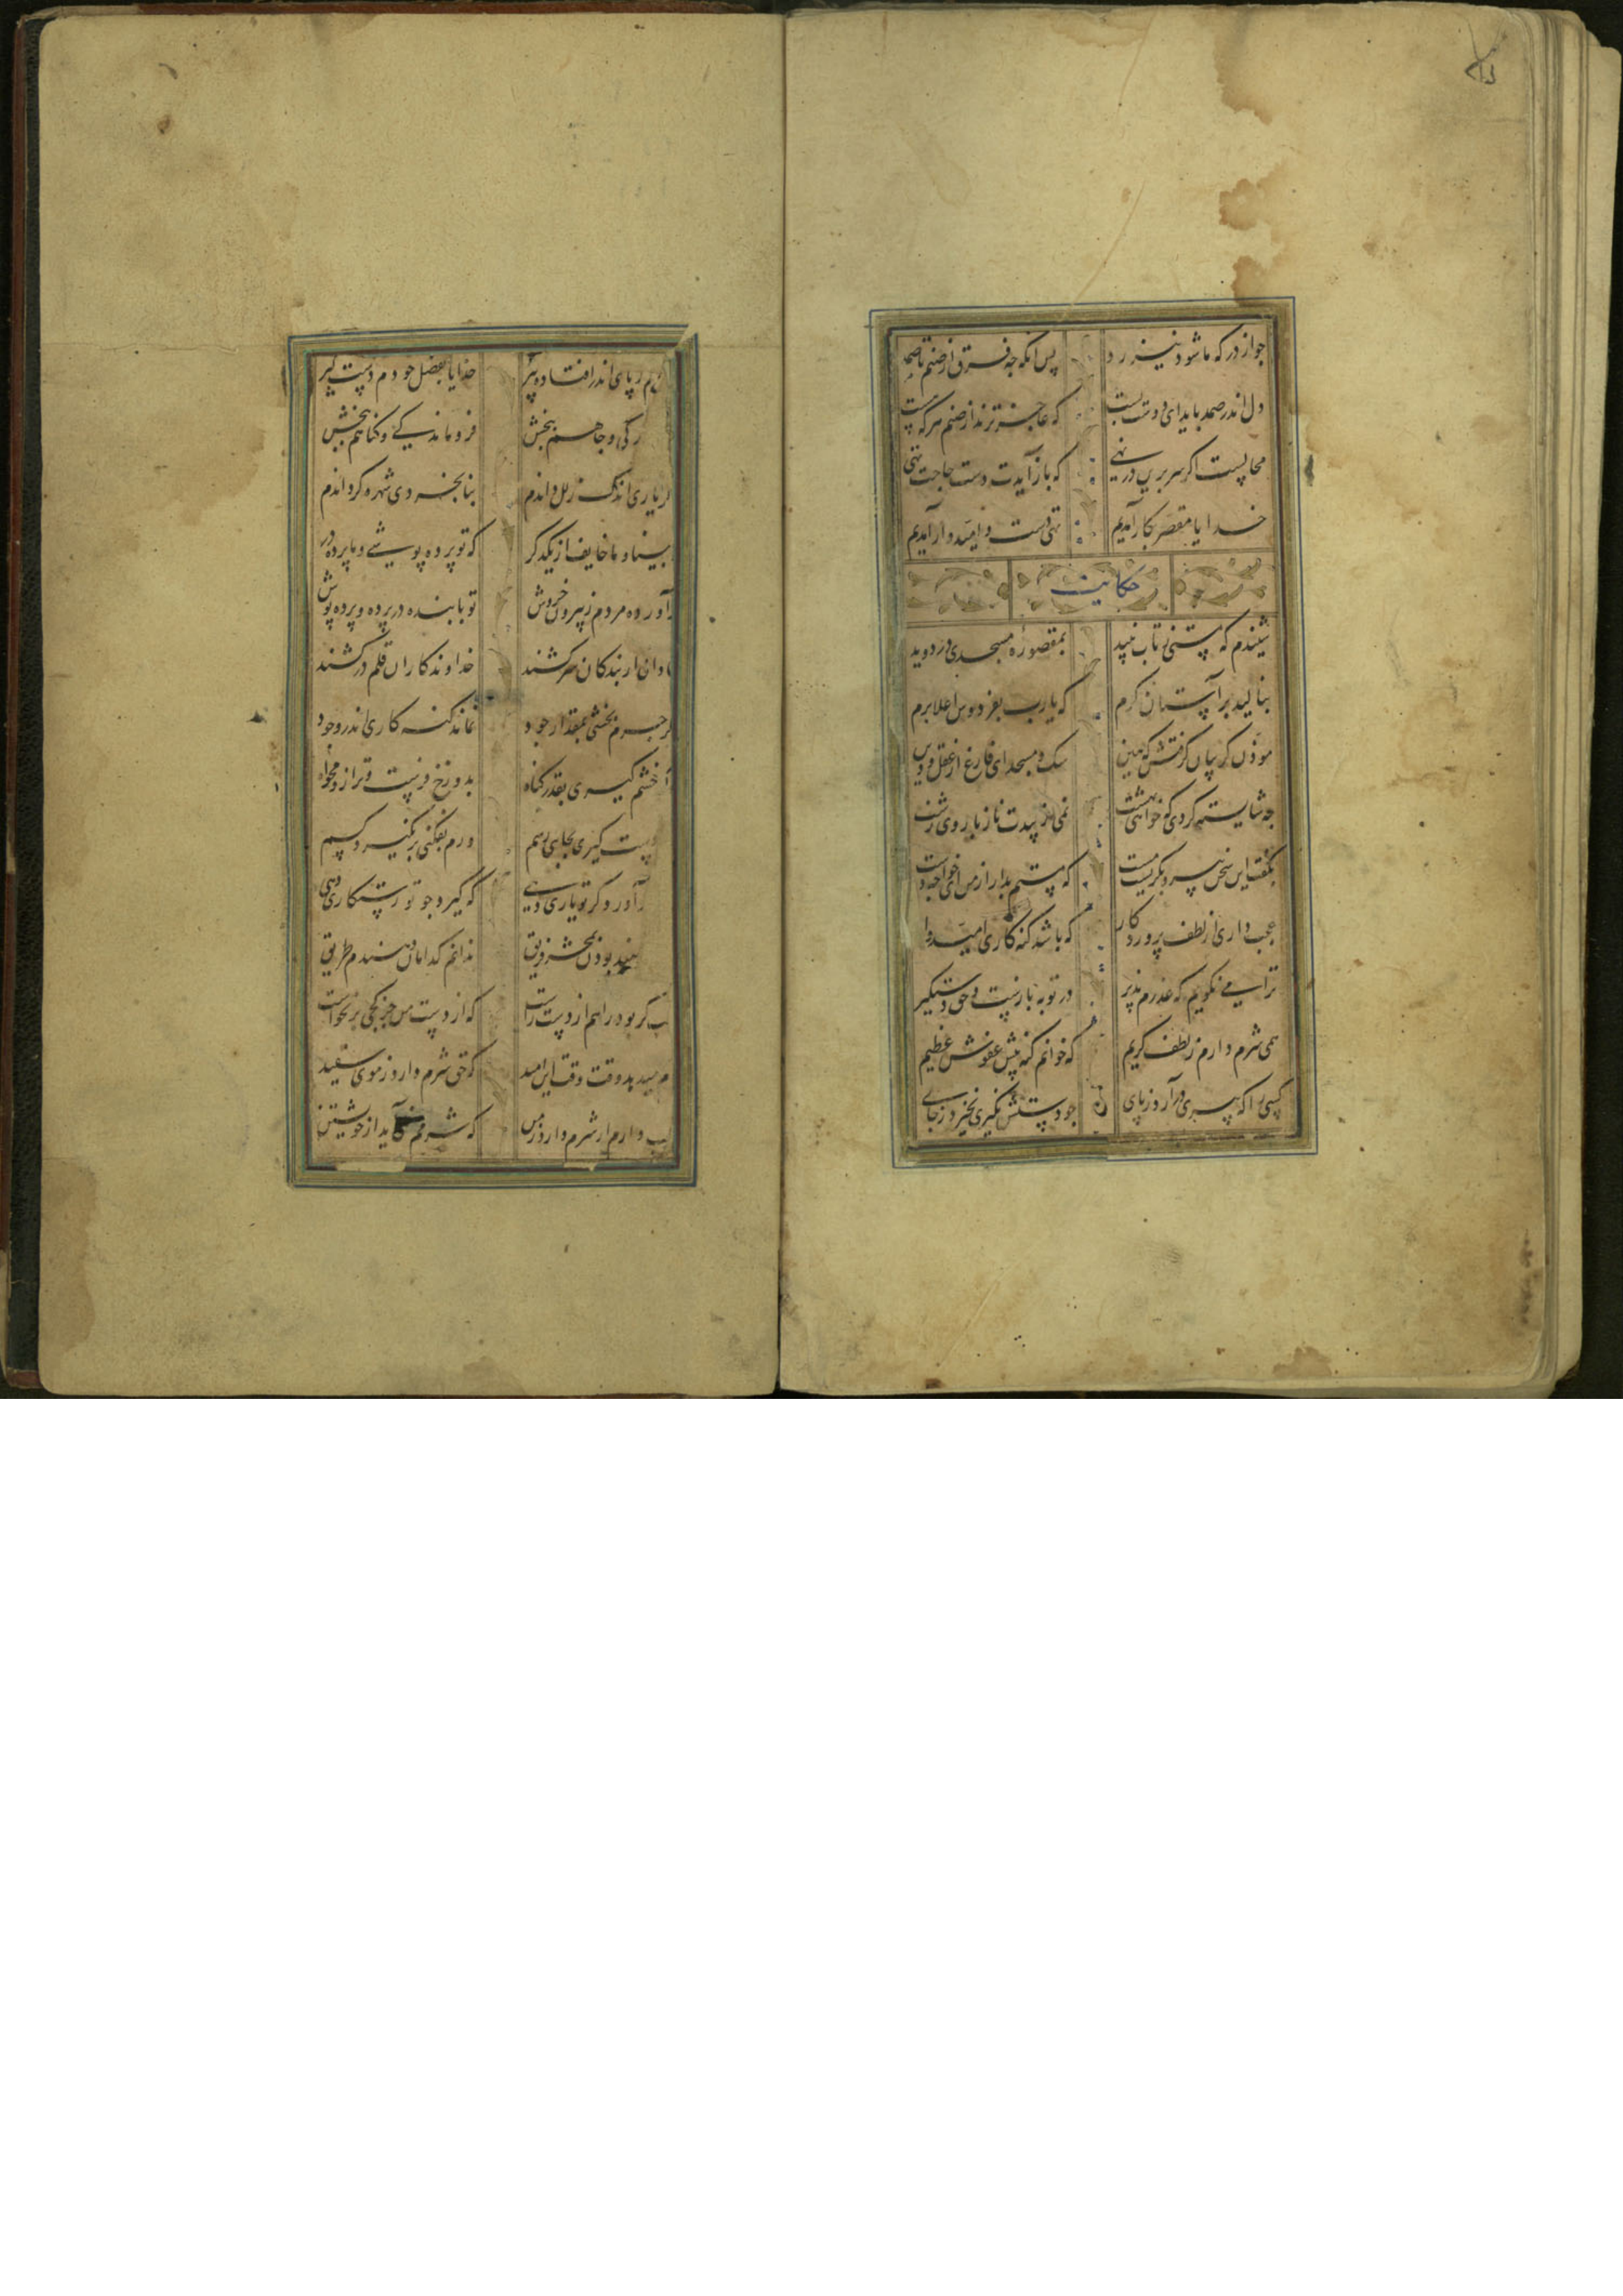 جو از درکه ما شود نیز رد
پس آنکه جه فرق از صنم تا صمد
دل اندر صمد باید ای دوست بست
که عاجزترند از صنم هر که هست
محالست اکر سر برین در نهی
که باز آیدت دست حاجت تهی
خدایا مقصر بکار آمدیم
تهی دست و امیدوار آمدیم
حکایت
شنیدم که مستی ز تاب نبید
بمقصوره مسجدی در دوید
بنالید بر آستان کرم
که یارب بفردوس اعلا برم
موذن کریبان کرفتش که هین
سک و مسجد ای فارغ از عقل و دین
جه شایسته کردی که خواهی بهشت
نمی زیبدت ناز با روی زشت
بکفت این سخن پیر و بکریست مست
که مستم بدار از من ای خواجه دست
عجب داری از لطف پروردکار
که باشد کنه کاری امیدوار
ترا می نکویم که عذرم پذیر
در توبه بازست و حق دستکیر
همی شرم دارم ز لطف کریم
که خوانم کنه پیش عفوش عظیم
کسی را که پیری در آرد ز پای
جو دستش نکیری نخیزد ز جای
ز پای اندر افتاده پیر
خدایا بفضل خودم دست کیر
بزرکی و جاهم ببخش
فروماندکی و کناهم ببخش
یاری اندک زلل داندم
بنابخردی شهره کرداندم
بینا و ما خایف از یکدکر
که تو پرده پوشی و ما پرده در
آورده مردم ز بیرون خروش
تو با بنده در پرده و پرده پوش
نادان ار بندکان سر کشند
خداوندکاران قلم در کشند
جرم بخشی بمقدار جود
نماند کنه کاری اندر وجود
خشم کیری بقدر کناه
بدوزخ فرست و ترازو مخواه
دست کیری بجایی رسم
ورم بفکنی بر نکیرد کسم
آورد کر تو یاری دهی
که کیرد جو تو رستکاری دهی
بودن بمحشر فریق
ندانم کدامان دهندم طریق
کر بود راهم از دست راست
که از دست من جز کجی بر نخاست
میدهد وقت وقت این امید
که حق شرم دارد ز موی سفید
دارم ار شرم دارد ز من
که شرمم نمی آید از خویشتن